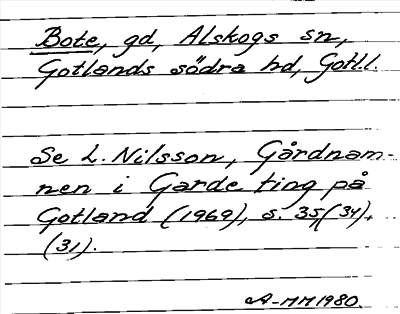 Bote, gd, Alskogs sn,
Gotlands södra hd, Gotl.l.
Se L. Nilsson, Gårdnam-
nen i Garde ting på
Gotland (1969), s. 35, (34),
(31).
A-MM 1980.